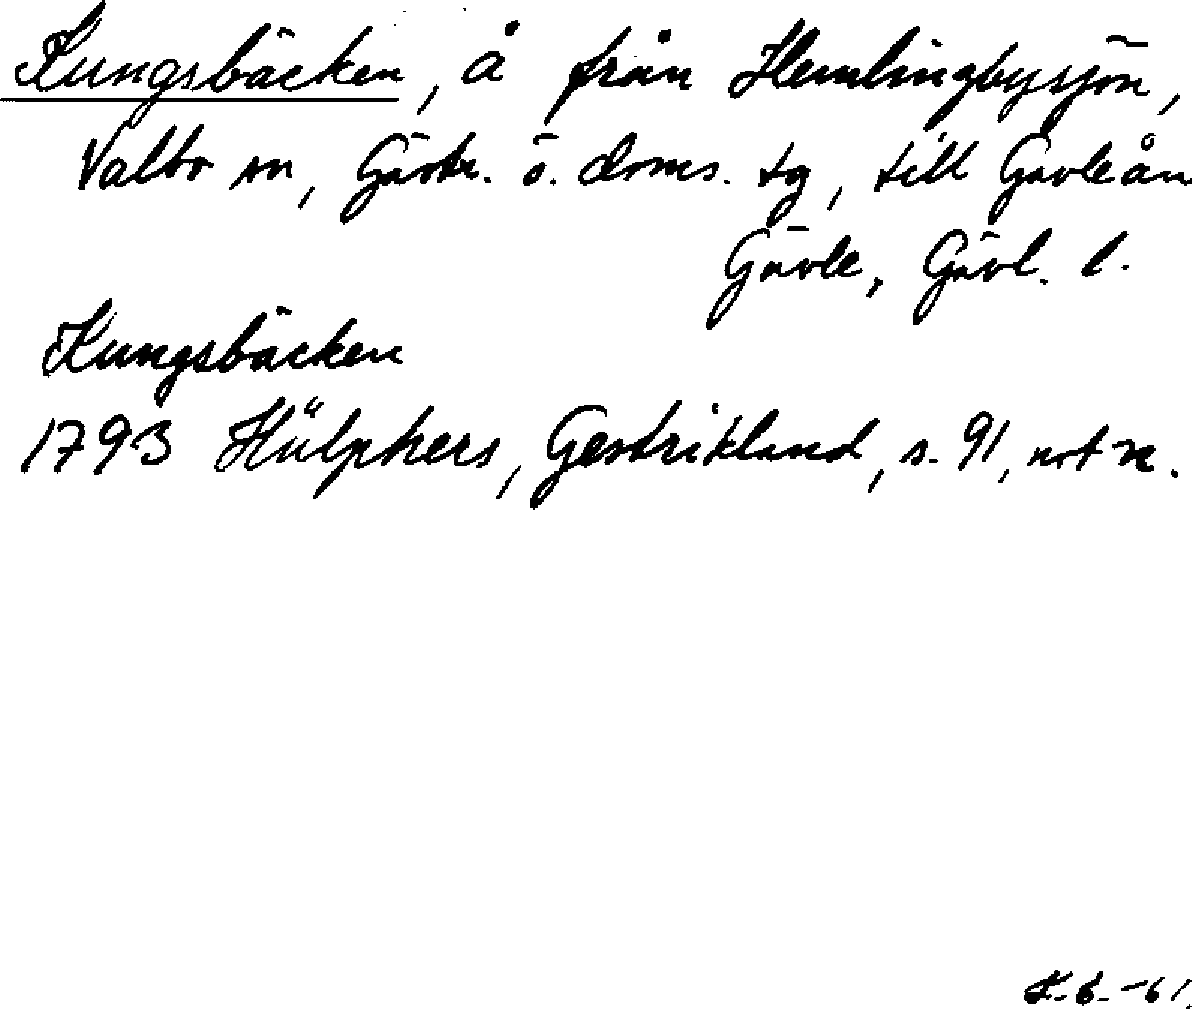 Kungsbäcken, å från Hemlingbysjön,
Valbo sn, Gästr. ö. doms. tg, till Gavleån
Gävle, Gävl. l.
Kungsbäcken
1793 Hülphers, Gestrikland, s. 91, not n.
K. B. -61